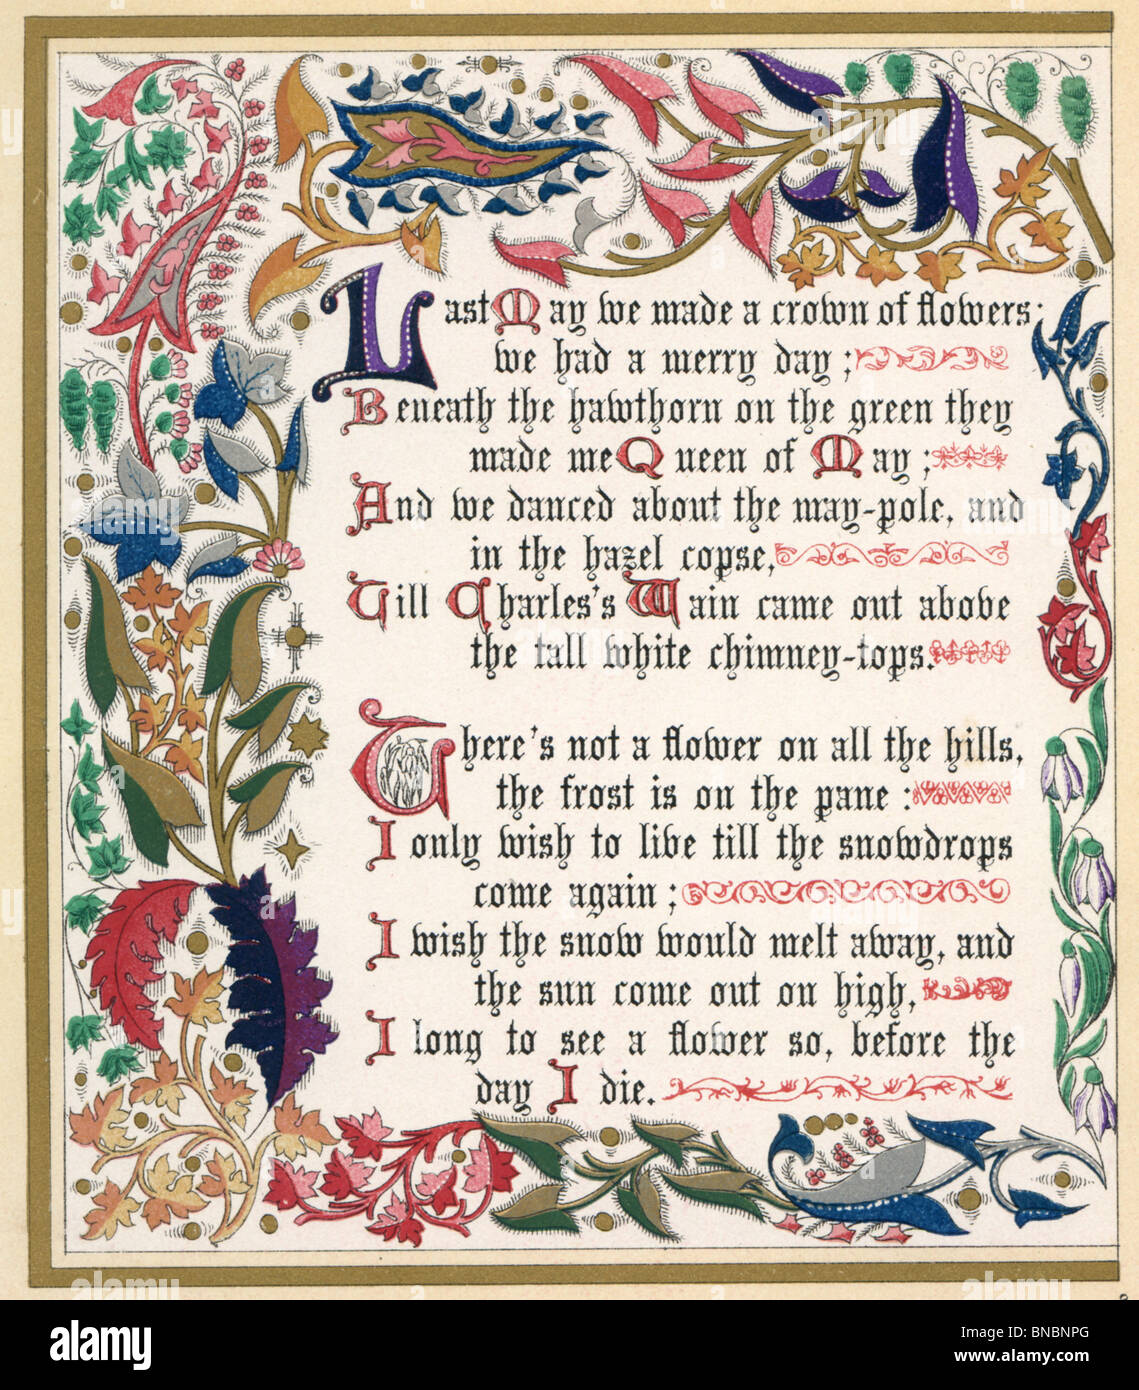 Last May we made a crown of flowers:
we had a merry day;
Beneath the hawthorn on the green they
made me Queen of May;
And we danced about the may-pole, and
in the hazel copse,
Till Charles's Wain came out above
the tall white chimney-tops.
There's not a flower on all the hills,
the frost is on the pane:
I only wish to live till the snowdrops
come again;
I wish the snow would melt away, and
the sun come out on high,
I long to see a flower so, before the
day I die.
alamy
Image ID: BNBNPG
www.alamy.com